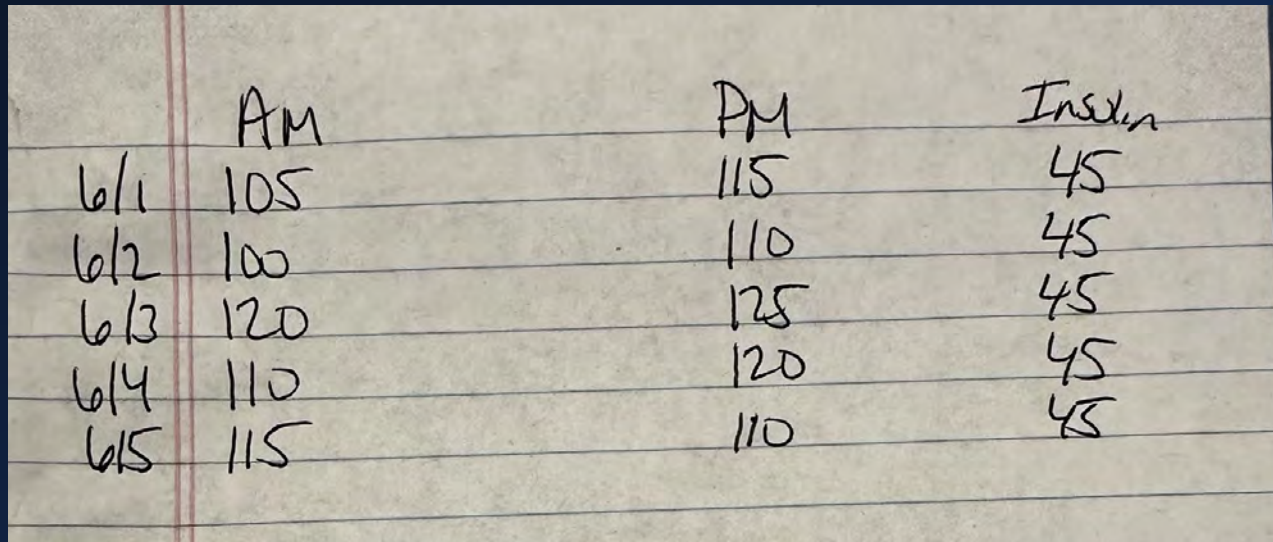 AM PM Insulin
6/1 105 115 45
6/2 100 110 45
6/3 120 125 45
6/4 110 120 45
6/5 115 110 45